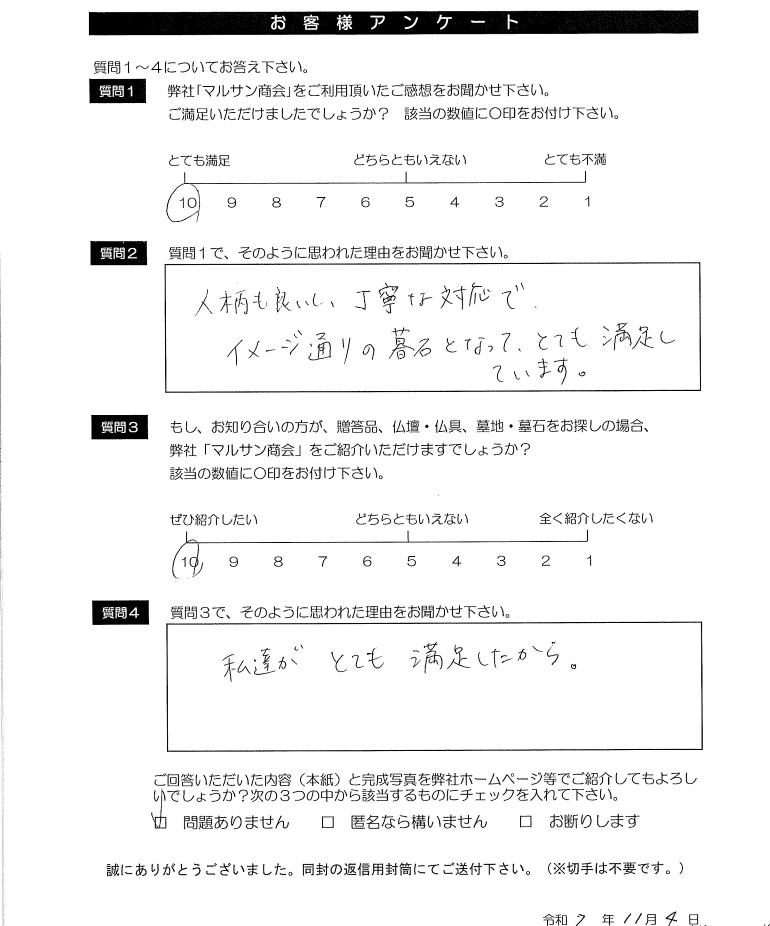 お客様アンケート
質問1～4についてお答え下さい。
質問1 弊社「マルサン商会」をご利用頂いたご感想をお聞かせ下さい。
ご満足いただけましたでしょうか？ 該当の数値に〇印をお付け下さい。
とても満足 どちらともいえない とても不満
10 9 8 7 6 5 4 3 2 1
質問2 質問1で、そのように思われた理由をお聞かせ下さい。
人柄も良いし、丁寧な対応で、
イメージ通りの墓石となって、とても満足し
ています。
質問3 もし、お知り合いの方が、贈答品、仏壇・仏具、墓地・墓石をお探しの場合、
弊社「マルサン商会」をご紹介いただけますでしょうか？
該当の数値に〇印をお付け下さい。
ぜひ紹介したい どちらともいえない 全く紹介したくない
10 9 8 7 6 5 4 3 2 1
質問4 質問3で、そのように思われた理由をお聞かせ下さい。
私達が とても 満足したから。
ご回答いただいた内容（本紙）と完成写真を弊社ホームページ等でご紹介してもよろし
いでしょうか？次の3つの中から該当するものにチェックを入れて下さい。
☑ 問題ありません □ 匿名なら構いません □ お断りします
誠にありがとうございました。同封の返信用封筒にてご送付下さい。（※切手は不要です。）
令和 7 年 11月 4 日